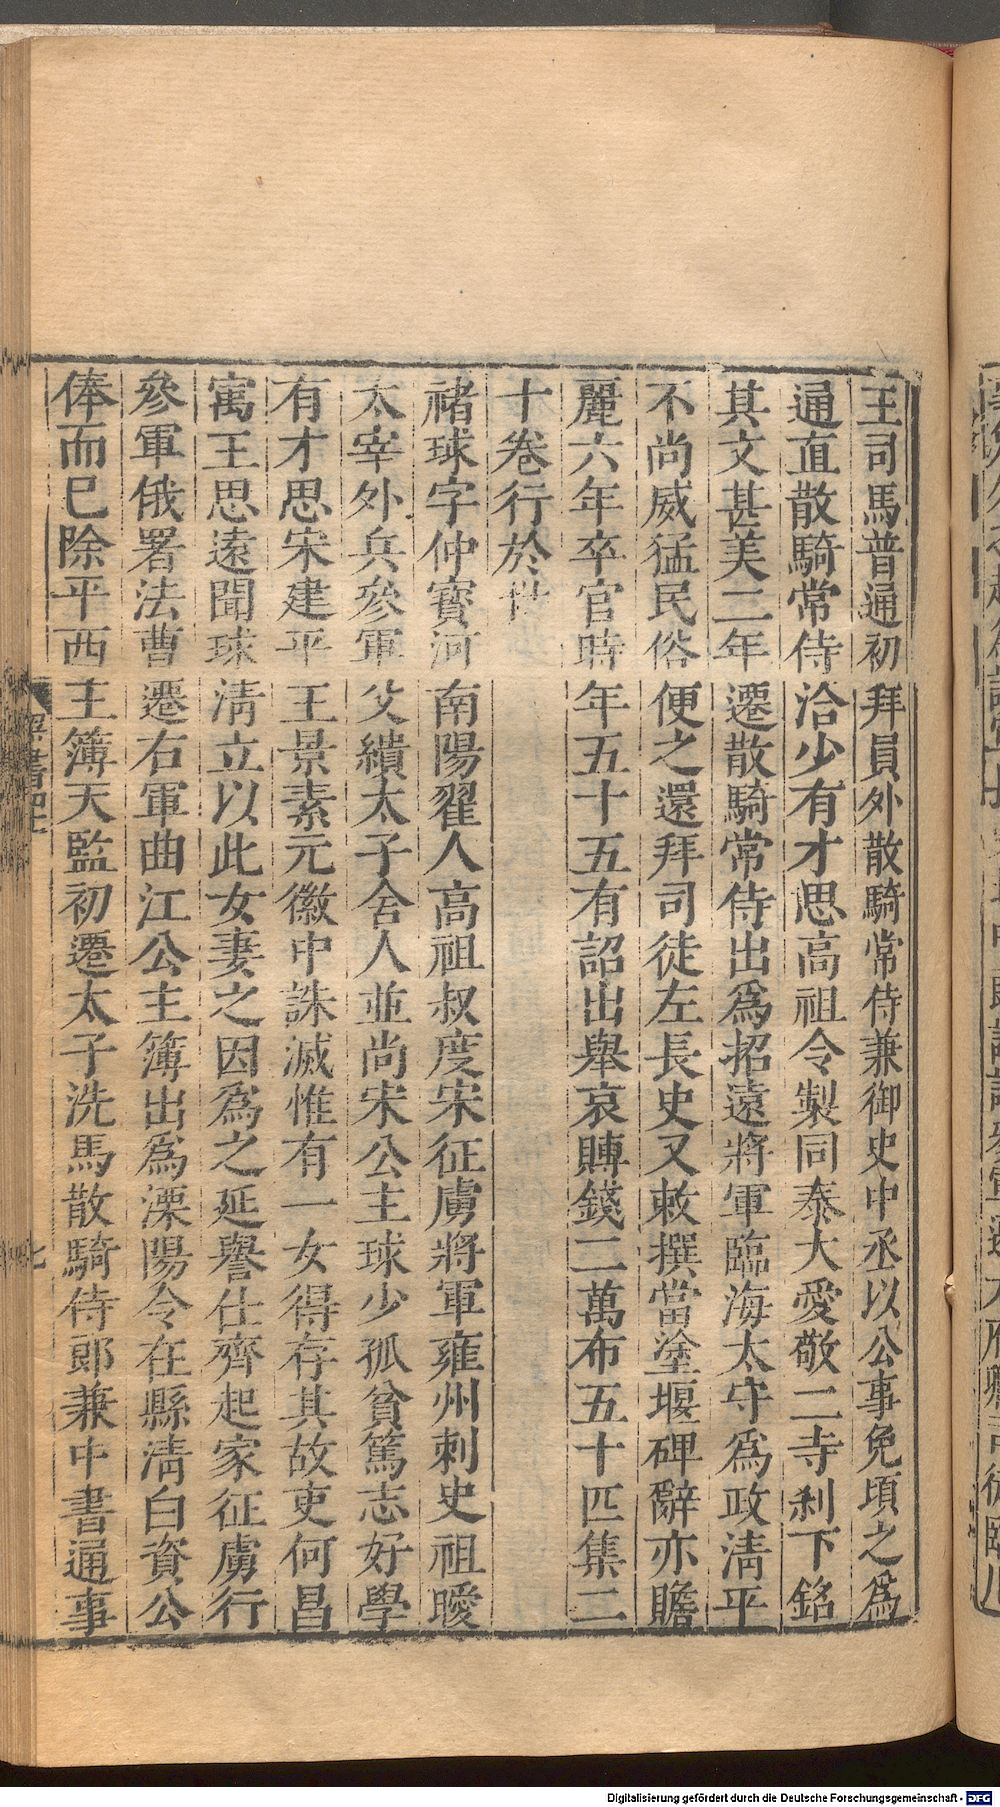 王司馬普通初拜員外散騎常侍兼御史中丞以公事免頃之爲
通直散騎常侍洽少有才思高祖令製同泰大愛敬二寺刹下銘
其文甚美二年遷散騎常侍出爲招遠將軍臨海太守爲政淸平
不尚威猛民俗便之還拜司徒左長史又敕撰當塗堰碑辭亦贍
麗六年卒官時年五十五有詔出舉哀賻錢二萬布五十匹集二
十卷行於世
褚球字仲寶河南陽翟人高祖叔度宋征虜將軍雍州刺史祖曖
太宰外兵參軍父繢太子舍人並尚宋公主球少孤貧篤志好學
有才思宋建平王景素元徽中誅滅惟有一女得存其故吏何昌
寓王思遠聞球淸立以此女妻之因爲之延譽仕齊起家征虜行
參軍俄署法曹遷右軍曲江公主簿出爲溧陽令在縣淸白資公
俸而巳除平西主簿天監初遷太子洗馬散騎侍郎兼中書通事
七
Digitalisierung gefördert durch die Deutsche Forschungsgemeinschaft - DFG